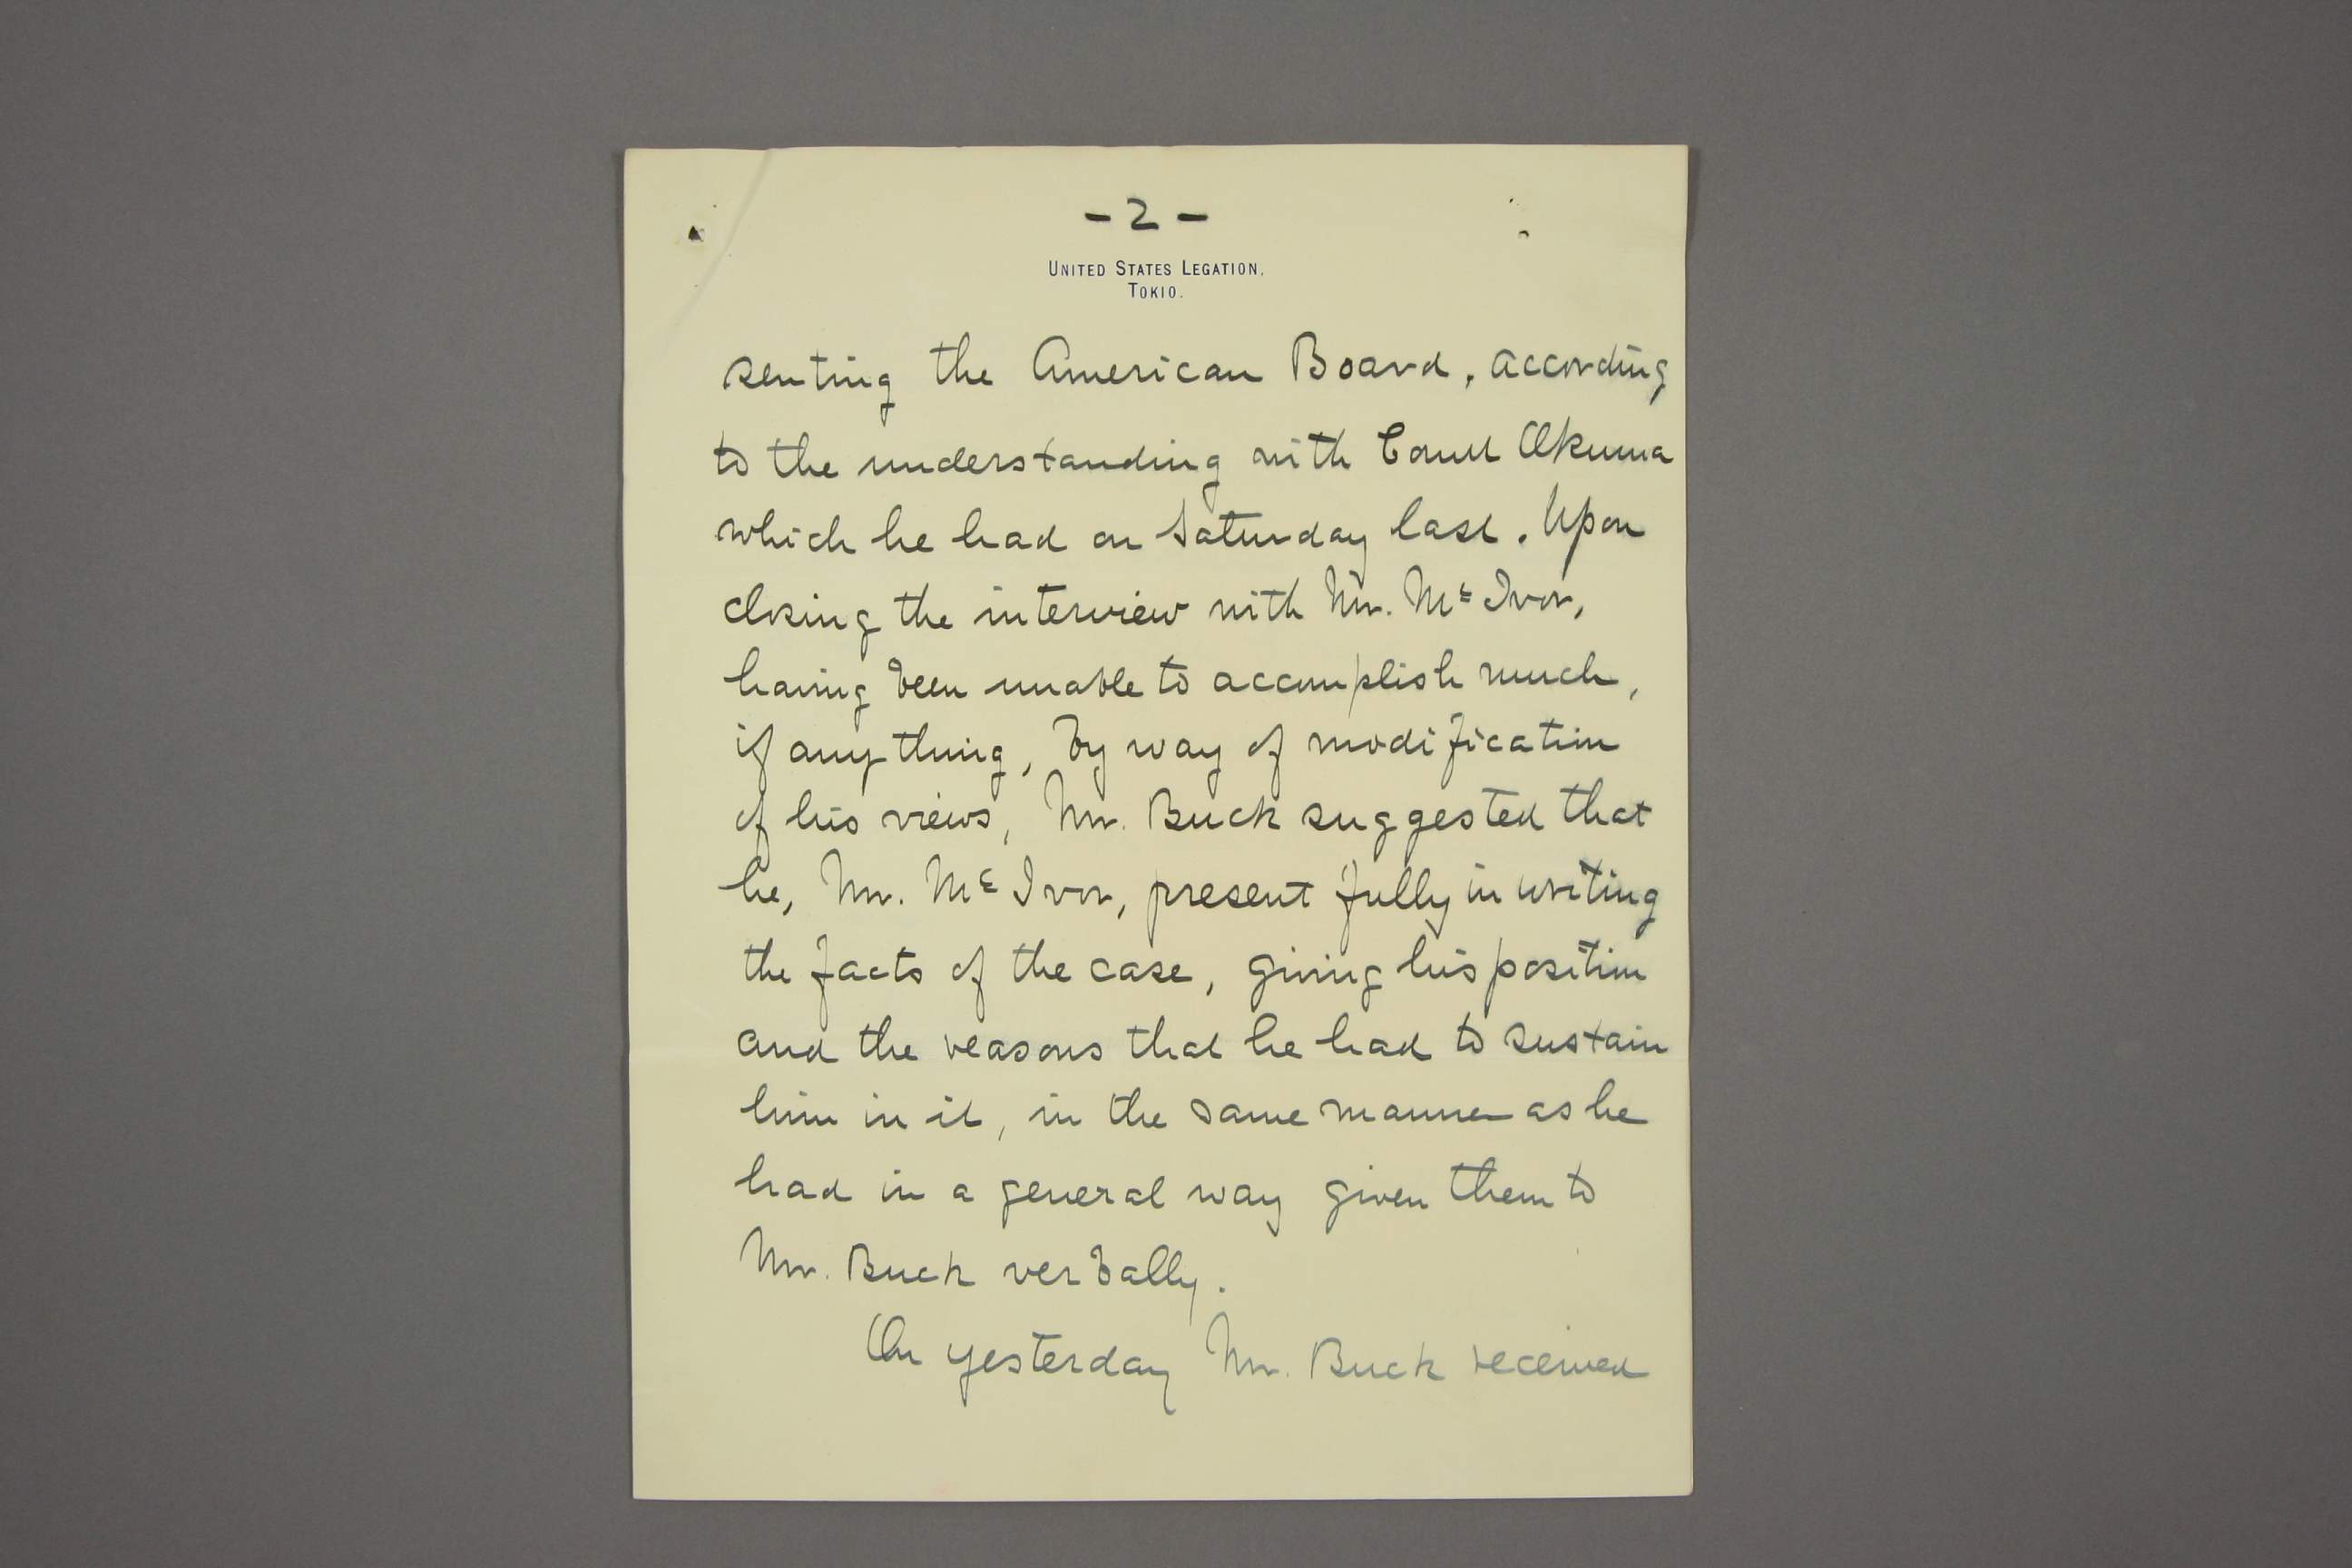 - 2 -
UNITED STATES LEGATION.
TOKIO.
senting the American Board, according
to the understanding with Count Okuma
which he had on Saturday last. Upon
closing the interview with Mr. McIvor,
having been unable to accomplish much,
if anything, by way of modification
of his views, Mr. Buck suggested that
he, Mr. McIvor, present fully in writing
the facts of the case, giving his position
and the reasons that he had to sustain
him in it, in the same manner as he
had in a general way given them to
Mr. Buck verbally.
On yesterday Mr. Buck received